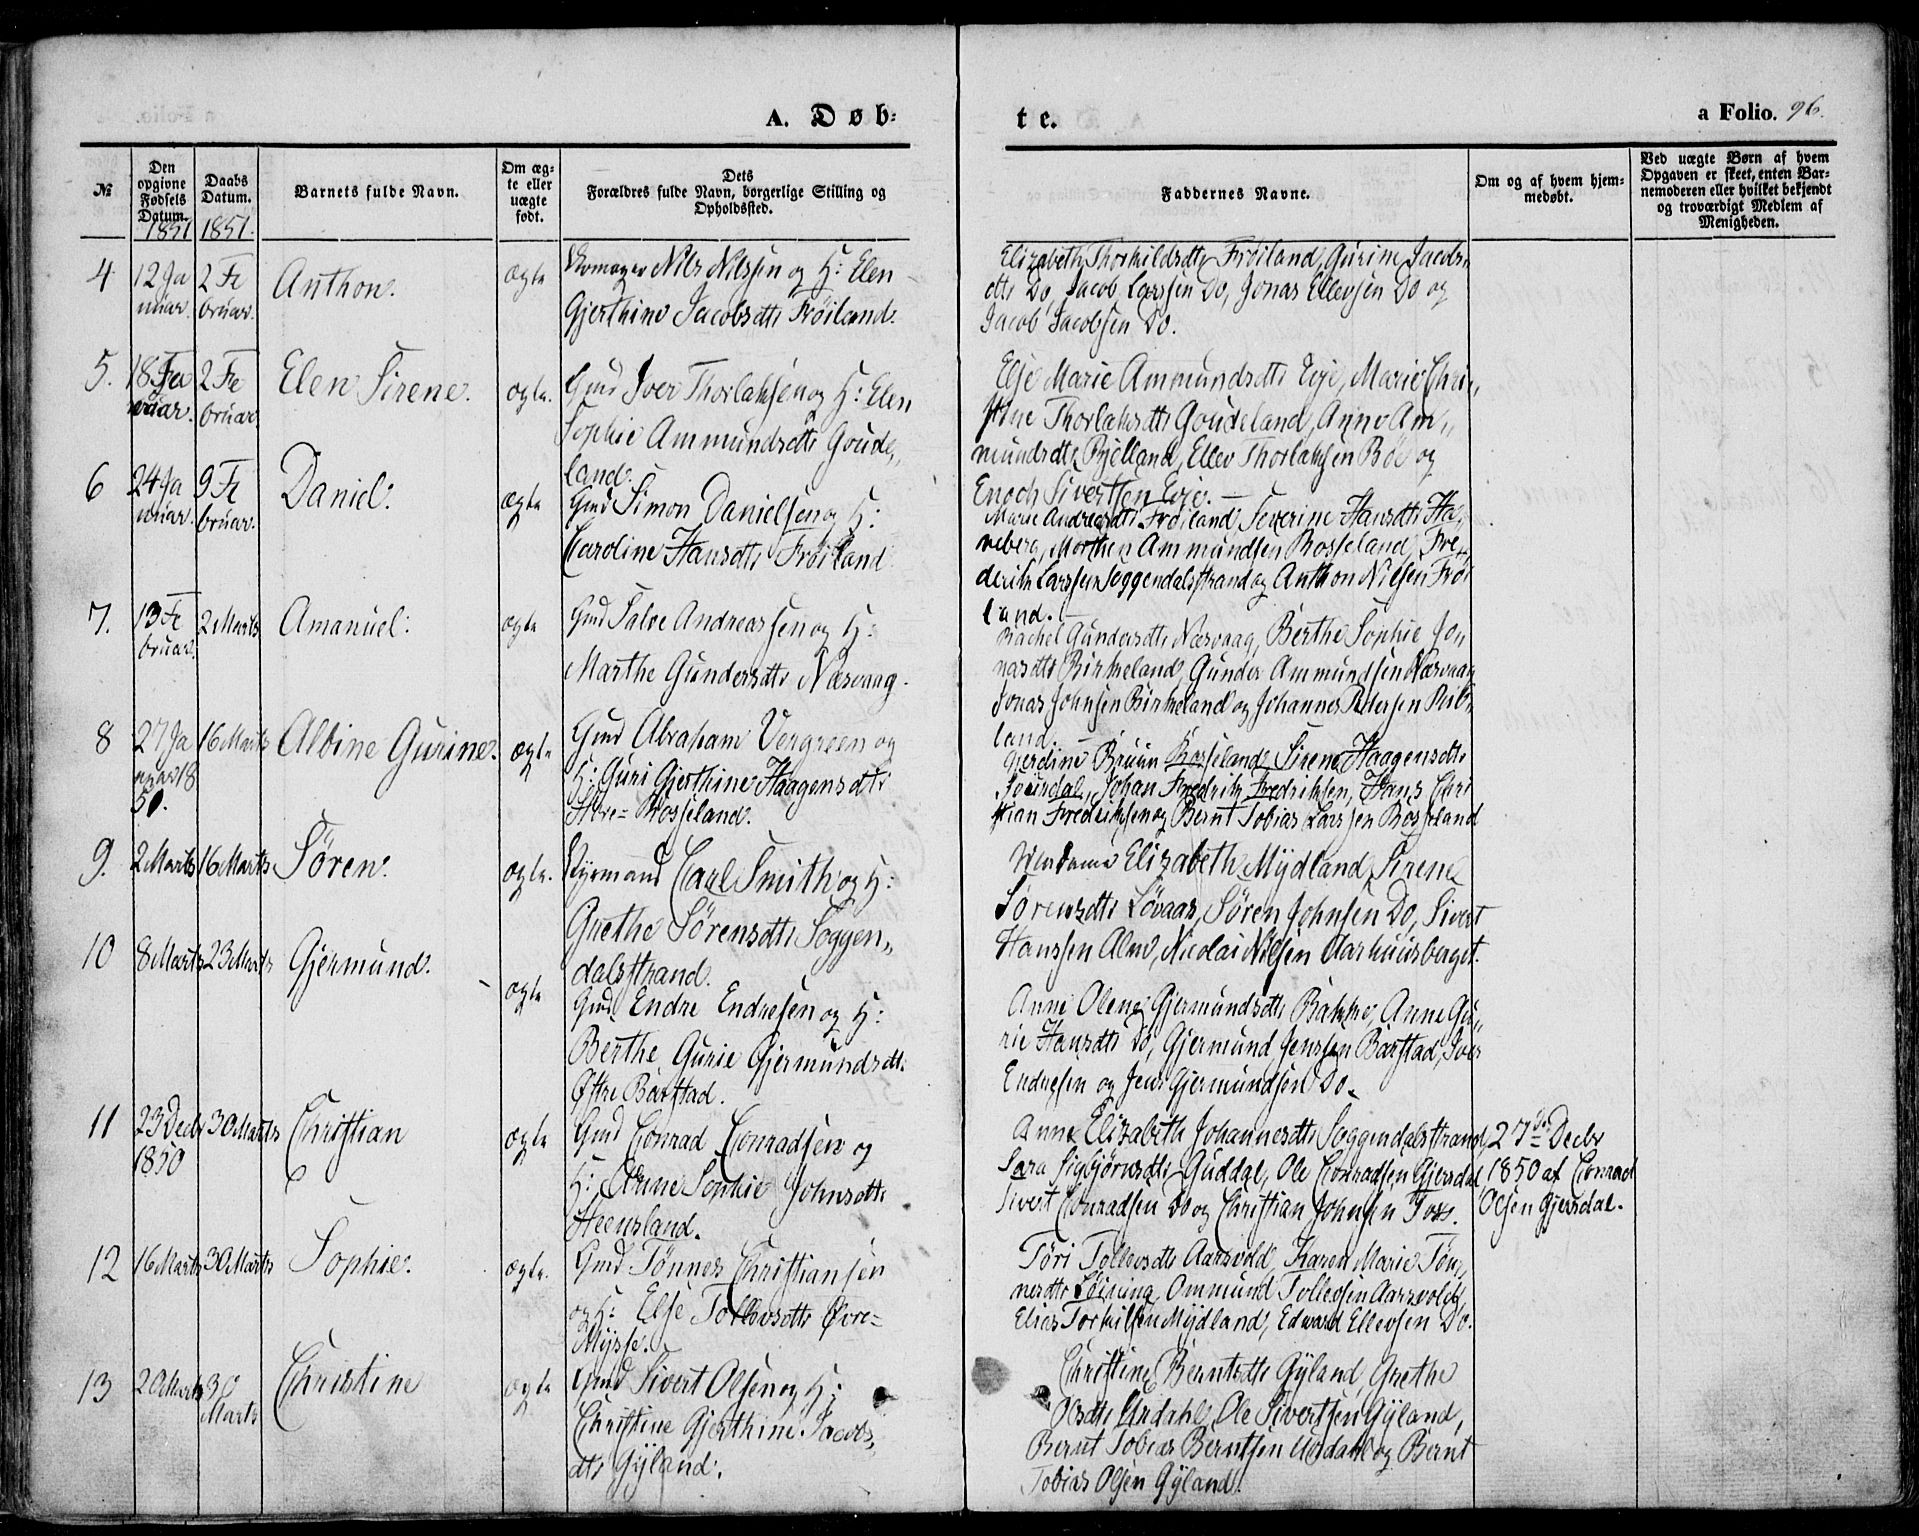 A. Døb=
te.
a Folio. 96.
№
Den opgivne Fødsels Datum.
1851
Daabs Datum.
1851.
Barnets fulde Navn.
Om ægte eller uægte født.
Dets Forældres fulde Navn, borgerlige Stilling og Opholdssted.
Faddernes Navne.
Om og af hvem hjemmedøbt.
Ved uægte Børn af hvem Opgaven er skeet, enten Barnemoderen eller hvilket bekjendt og troværdigt Medlem af Menigheden.
4
12 Ja
nuar.
2 Fe
bruar.
Anthon.
ægte
Skomager Nils Nilssen og H: Elen
Gjerthine Jacobsdtr Frøiland.
Elizabeth Thorkildsdtr Frøiland, Gurine Jacobs
dtr Do, Jacob Larssen Do, Jonas Ellevsen Do og
Jacob Jacobsen Do.
5.
18
nuar.
2 Fe
bruar.
Elen Sirene.
ægte.
Gmd Iver Thorlaksen og H: Elen
Sophie Ammundsdtr Goude„
land.
Else Marie Ammundsdtr Evje, Marie Chri„
stine Thorlaksdtr Goudeland, Anne Am„
mundsdtr Bjelland, Ellev Thorlaksen Bøe og
Enoch Sivertsen Evje. —
6
24 Ja
nuar.
9 Fe
bruar.
Daniel.
ægte
Gmd Simon Danielsen og H:
Caroline Hansdtr Frøiland
Marie Andreasdtr Frøiland, Severine Hansdtr Ha„
neberg, Morthen Ammundsen Rosseland, Fre„
derik Larssen Soggendalsstrand og Anthon Nilsen Frøi
land. —
7.
13 Fe
bruar.
2 Marts
Amanuel.
ægte
Gmd Salve Andreassen og H:
Marthe Gundersdtr Næsvaag.
Rachel Gundersdtr Næsvaag, Berthe Sophie Jo„
nasdtr Birkeland, Gunder Ammundsen Næsvaag
Jonas Johnsen Birkeland og Johannes Petersen
land. —
8
27 Ja
nuar 18
50.
16 Marts
Albine Gurine.
ægte
Gmd Abraham Vergreen og
H: Guri Gjerthine Haagensdtr
Store= Rosseland.
Gierdine Bruun Rosseland, Sirene Haagensdtr
Johan Fredrik Fredriksen, Hans Chri
stian Fredriksen og Bernt Tobias Larssen Rosseland
9.
2 Marts
16 Marts
Søren.
ægte.
Styrmand Carl Smith og H:
Grethe Sørensdtr Soggen„
dalsstrand.
Madame Elizabeth Mydland, Sirene
Sørensdtr Løvaas, Søren Johnsen Do, Sivert
Hanssen Alm, Nicolai Nilsen Aarhuusberget.
10
8 Marts
23 Marts
Gjermund.
ægte
Gmd Endre Endresen og H:
Berthe Gurie Gjermundsdtr
Østre Barstad.
Anne Olene Gjermundsdtr Bakke, Anne Gu„
rie Hansdtr Do, Gjermund Jenssen Barstad, Iver
Endresen og Jens Gjermundsen Do.
11
23 Decbr
1850
30 Marts
Christian
ægte
Gmd Conrad Conradsen og
H: Anne Sophie Johnsdtr
Steensland.
Anne Elizabeth Johannesdtr Soggendalsstrand,
Sara Sigbjørnsdtr Guddal, Ole Conradsen Gjersdal
Sivert Conradsen Do og Christian Johnsen Foss.
27de Decbr
1850 af Conrad
Olsen Gjersdal.
12
16 Marts
30 Marts
Sophie.
ægte.
Gmd Tønnes Christiansen
og H: Else Tollevsdtr Øvre=
Mysse.
Tøri Tollevsdtr Aarsvold, Karen Marie Tøn„
nesdtr Løining, Ommund Tollevsen Aarsvold,
Elias Torkilsen Mydland, Edward Ellevsen Do.
13
20 Marts
30
Marts
Christine
ægte
Gmd Sivert Olsen og H:
Christine Gjerthine Jacobs„
dtr Gyland.
Christine Berntsdtr Gyland, Grethe
Olsdtr Urdahl, Ole Sivertsen Gyland,
Bernt Tobias Berntsen Urdahl og Bernt
Tobias Olsen Gyland.